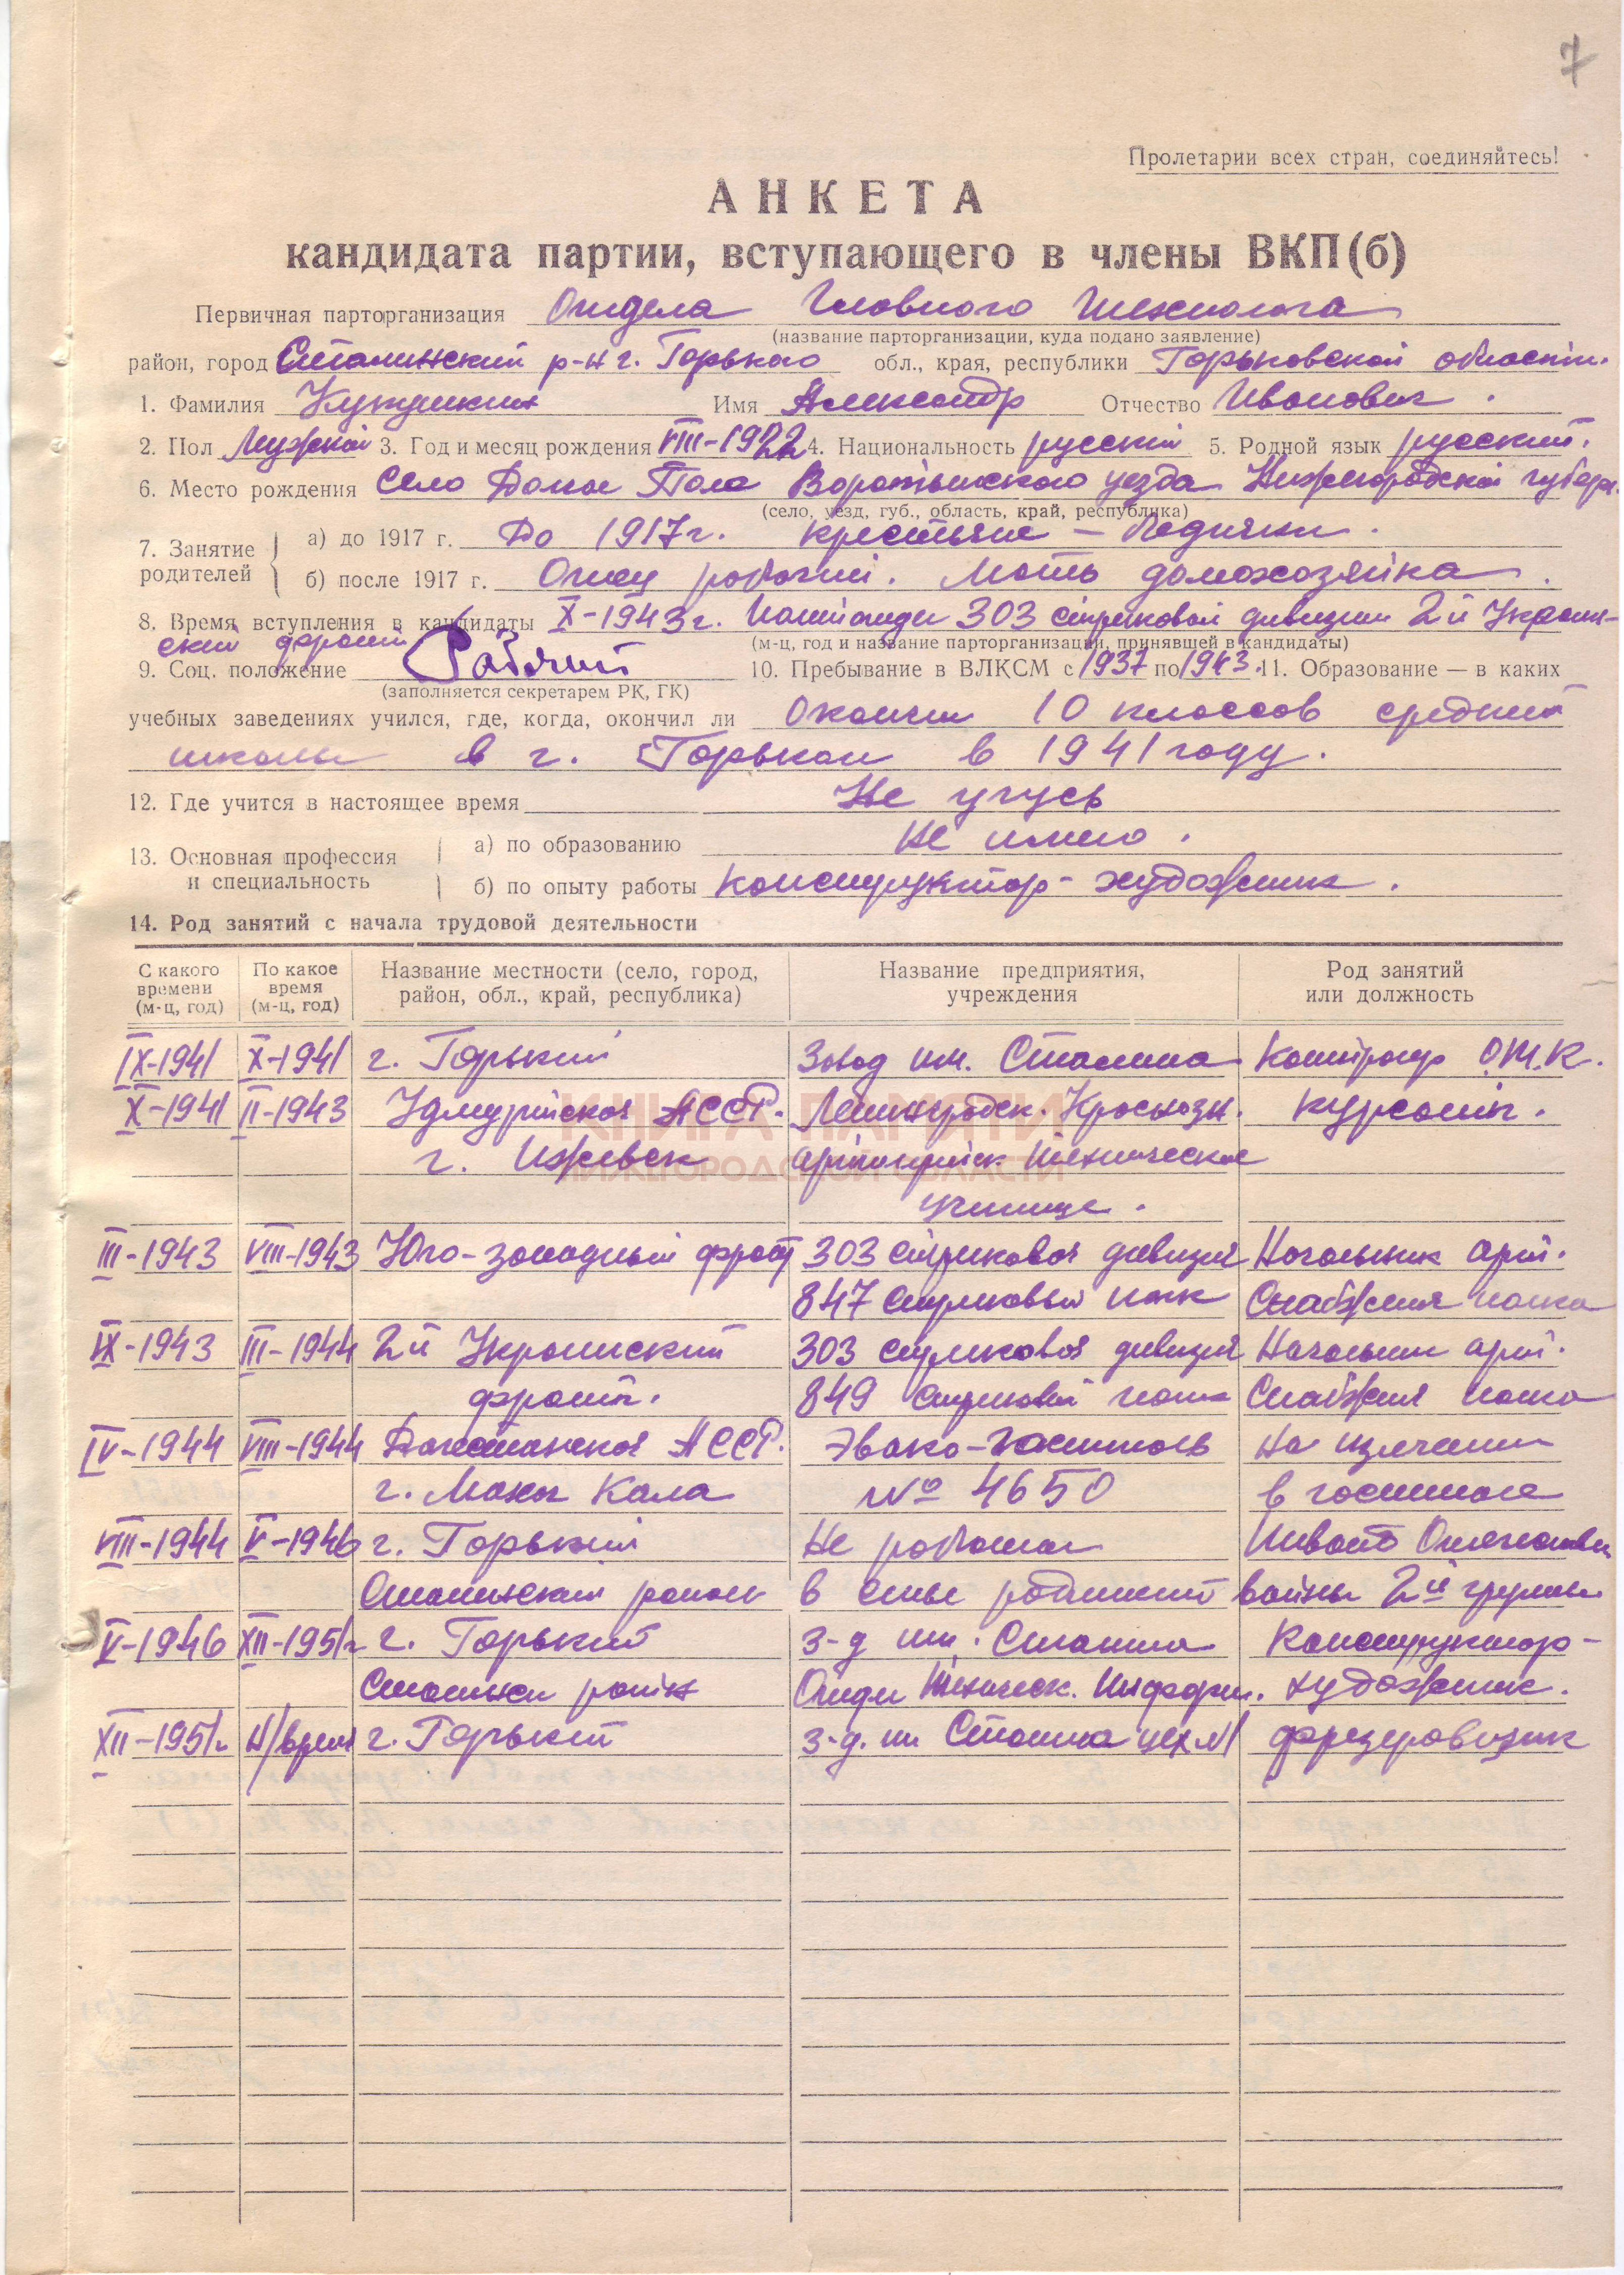 7
Пролетарии всех стран, соединяйтесь!
АНКЕТА
кандидата партии, вступающего в члены ВКП(б)
Первичная парторганизация Отдела Главного Технолога
(название парторганизации, куда подано заявление)
район, город Сталинский р-н г. Горького обл., края, республики Горьковской области.
1. Фамилия Имя Александр Отчество Иванович.
2. Пол Мужской 3. Год и месяц рождения VIII-1922 4. Национальность русский 5. Родной язык русский.
6. Место рождения Село Воротынского уезда Нижегородской губерн.
(село, уезд, губ., область, край, республика)
7. Занятие родителей а) до 1917 г. До 1917г. крестьяне - бедняки.
б) после 1917 г. Отец рабочий. Мать домохозяйка.
8. Время вступления в кандидаты X-1943г. 303 стрелковой дивизии 2й Украин-
ский фронт (м-ц, год и название парторганизации, принявшей в кандидаты)
9. Соц. положение Рабочий 10. Пребывание в ВЛКСМ с 1937 по 1943. 11. Образование — в каких
(заполняется секретарем РК, ГК)
учебных заведениях учился, где, когда, окончил ли Окончил 10 классов средней
школы в г. Горьком в 1941 году.
12. Где учится в настоящее время Не учусь
13. Основная профессия и специальность а) по образованию Не имею.
б) по опыту работы конструктор-художник.
14. Род занятий с начала трудовой деятельности
С какого времени (м-ц, год) По какое время (м-ц, год) Название местности (село, город, район, обл., край, республика) Название предприятия, учреждения Род занятий или должность
IX-1941 X-1941 г. Горький Завод им. Сталина Контролер О.Т.К.
X-1941 II-1943 Удмуртская АССР. Ленинградск. Краснозн. курсант.
г. Ижевск артиллерийск. техническое
училище.
III-1943 VIII-1943 Юго-западный фронт 303 стрелковая дивизия Начальник арт.
847 стрелковый полк Снабжения полка
IX-1943 III-1944 2й Украинский 303 стрелковая дивизия Начальник арт.
фронт. 849 стрелковый полк Снабжения полка
IV-1944 VIII-1944 Дагестанская АССР. Эвако-госпиталь На излечении
г. Махач Кала № 4650 в госпитале
VIII-1944 V-1946 г. Горький Не работал Инвалид Отечествен
Сталинский район в семье родителей войны 2й группы
V-1946 XII-1951г г. Горький з-д им. Сталина Конструктор-
Сталинск район Отдел Техническ. Информ. художник.
XII-1951г Н/время г. Горький з-д. им Сталина цех №1 фрезеровщик
КНИГА ПАМЯТИ
НИЖЕГОРОДСКОЙ ОБЛАСТИ